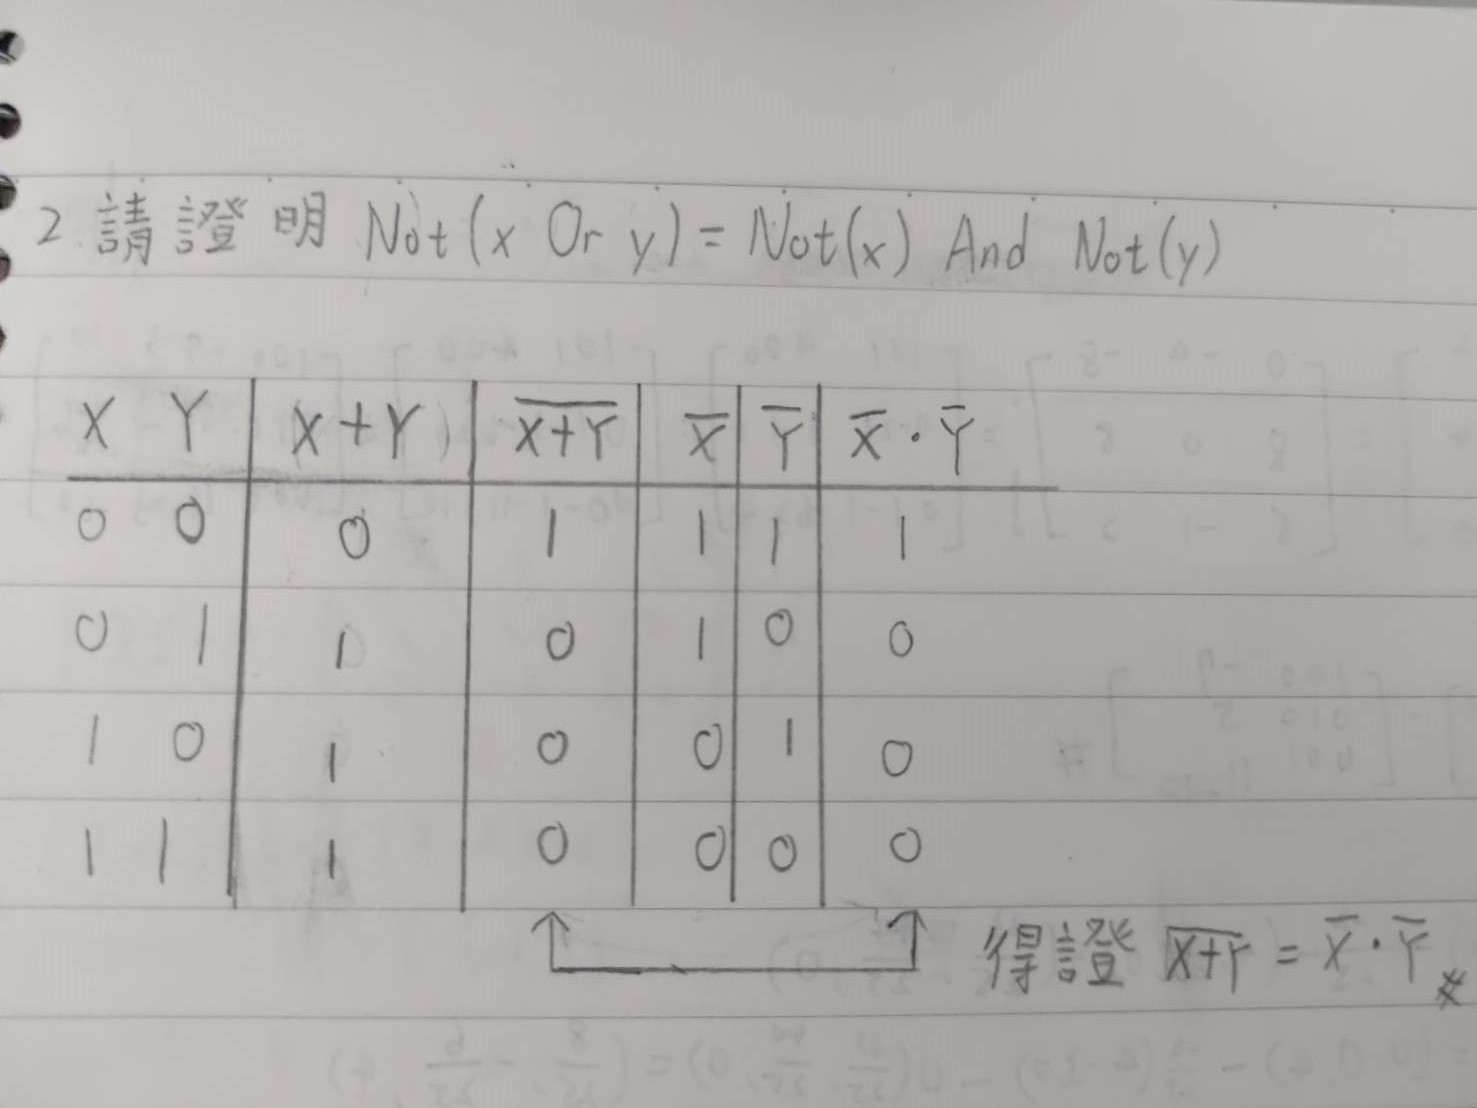 2 請證明 Not(x Or y) = Not(x) And Not(y)
X Y X+Y X̅+̅Y̅ X̅ Y̅ X̅·Y̅
0 0 0 1 1 1 1
0 1 1 0 1 0 0
1 0 1 0 0 1 0
1 1 1 0 0 0 0
得證 X̅+̅Y̅ = X̅·Y̅ #